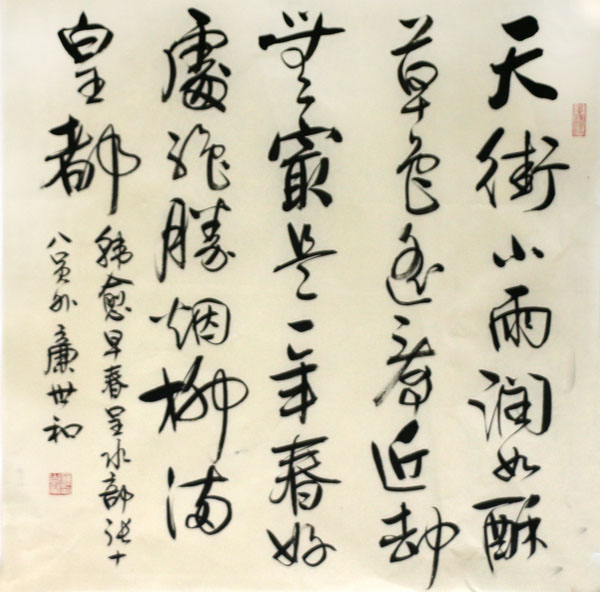 天街小雨润如酥
草色遥看近却
無最是一年春好
處绝勝烟柳满
皇都
韩愈早春呈水部张十
八员外廉世和